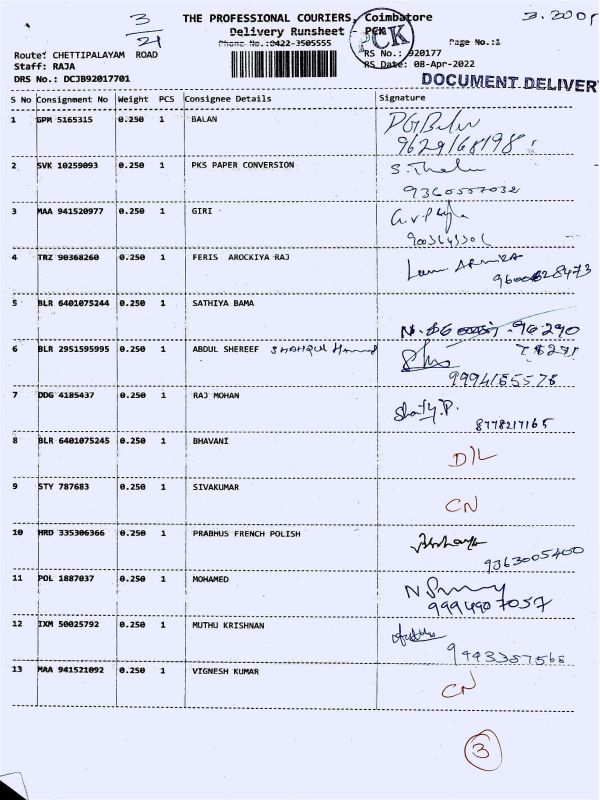 3
21
THE PROFESSIONAL COURIERS, Coimbatore
Delivery Runsheet - PCK
Phone No.:0422-3505555
Page No.:1
PCK
Route: CHETTIPALAYAM ROAD
RS No.: 920177
Staff: RAJA
RS Date: 08-Apr-2022
DRS No.: DCJB92017701
DOCUMENT DELIVER
S No Consignment No Weight PCS Consignee Details Signature
1 GPM 5165315 0.250 1 BALAN
9629168198
2 SVK 10259093 0.250 1 PKS PAPER CONVERSION
3 MAA 941520977 0.250 1 GIRI
4 TRZ 90368260 0.250 1 FERIS AROCKIYA RAJ
5 BLR 6401075244 0.250 1 SATHIYA BAMA
6 BLR 2951595995 0.250 1 ABDUL SHEREEF
9994165576
7 DDG 4185437 0.250 1 RAJ MOHAN
8778217165
8 BLR 6401075245 0.250 1 BHAVANI D/L
9 STY 787683 0.250 1 SIVAKUMAR CN
10 HRD 335306366 0.250 1 PRABHUS FRENCH POLISH
9363005400
11 POL 1887037 0.250 1 MOHAMED
9994907057
12 IXM 50025792 0.250 1 MUTHU KRISHNAN
13 MAA 941521092 0.250 1 VIGNESH KUMAR CN
3